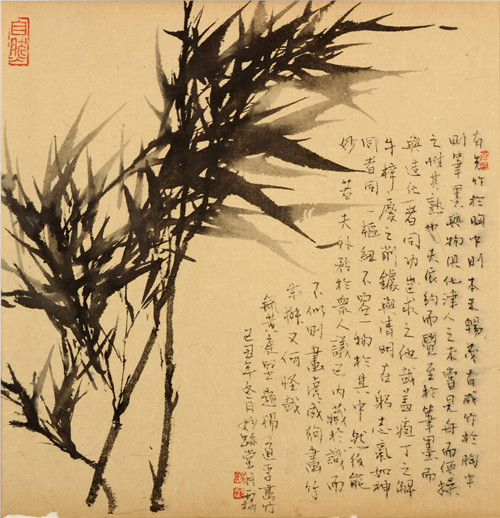 自然
有先竹於胸中則本末暢茂有成竹於胸中
則筆墨與物俱化津人之未嘗見舟而便操
之惟其熟也夫依約而覺至於筆墨而
與造化者同功豈求之他哉蓋庖丁之解
牛梓慶之削鐻與清明在躬志氣如神
同者同一樞紐不容一物於其中然後能
妙若夫外矜於衆人議己內藏於識而
不似則畫虎成狗畫竹
未辦又何怪哉
錄黃庭堅題楊道孚畫竹
己丑年冬月妙堂